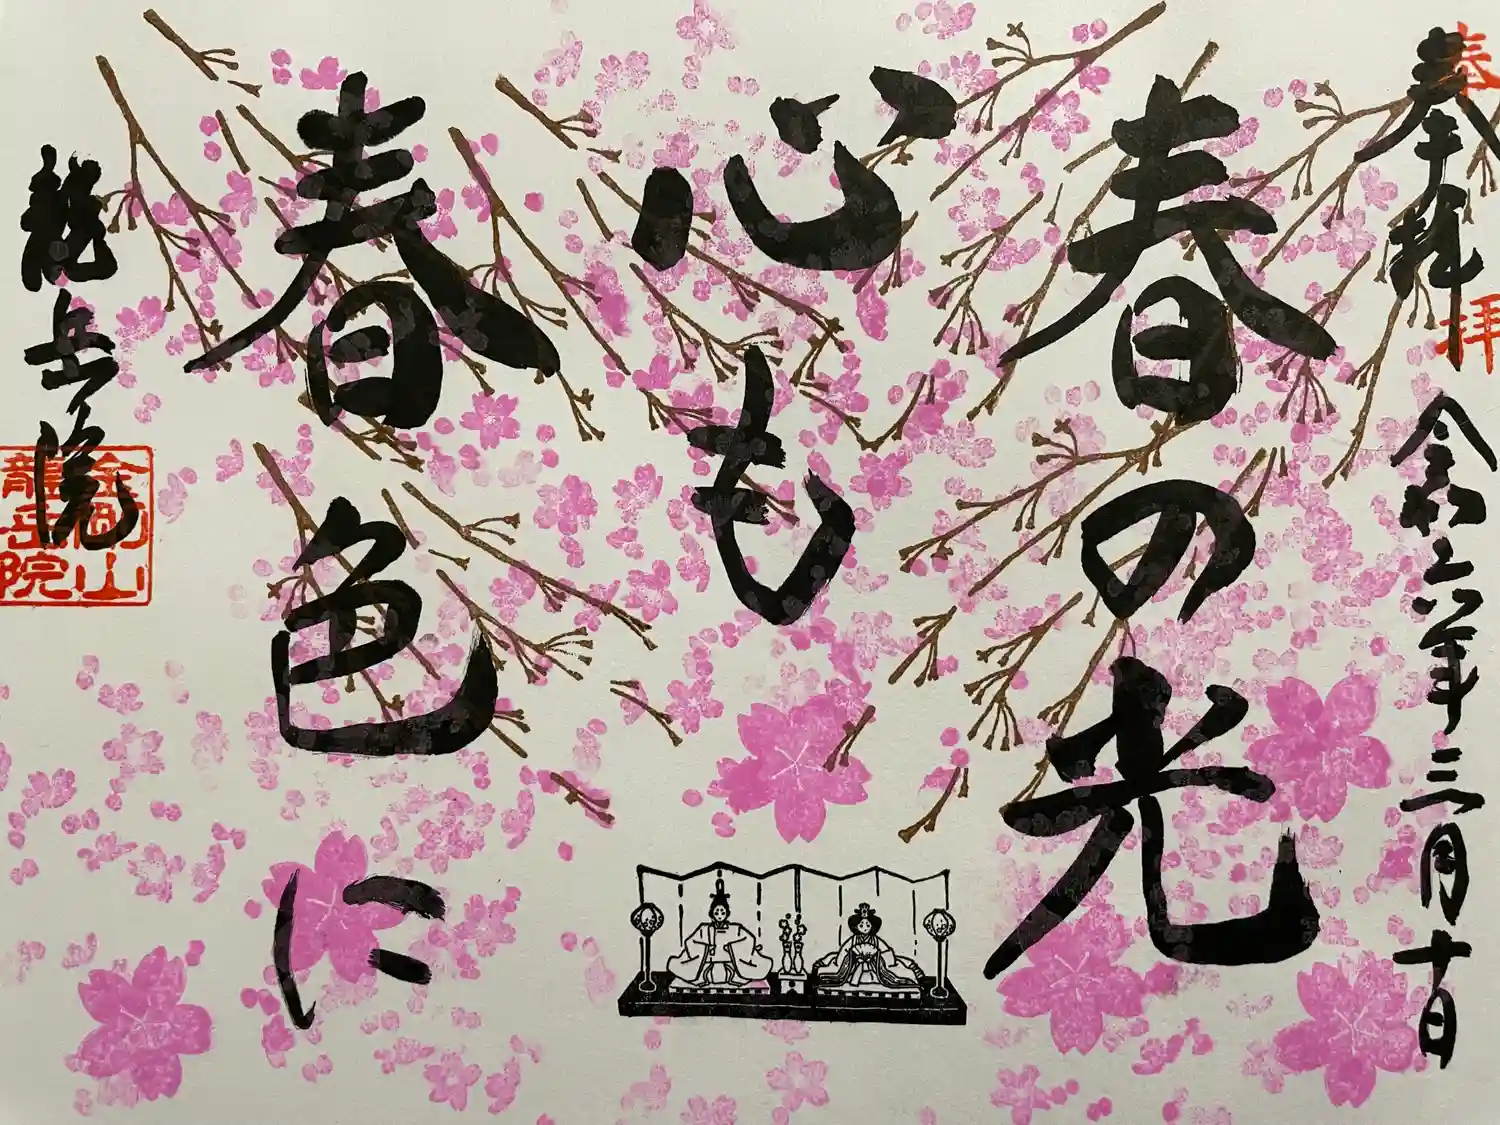 奉拝
奉拝
令和六年三月十日
春の光
心も
春色に
龍岳院
金剛山
龍岳院